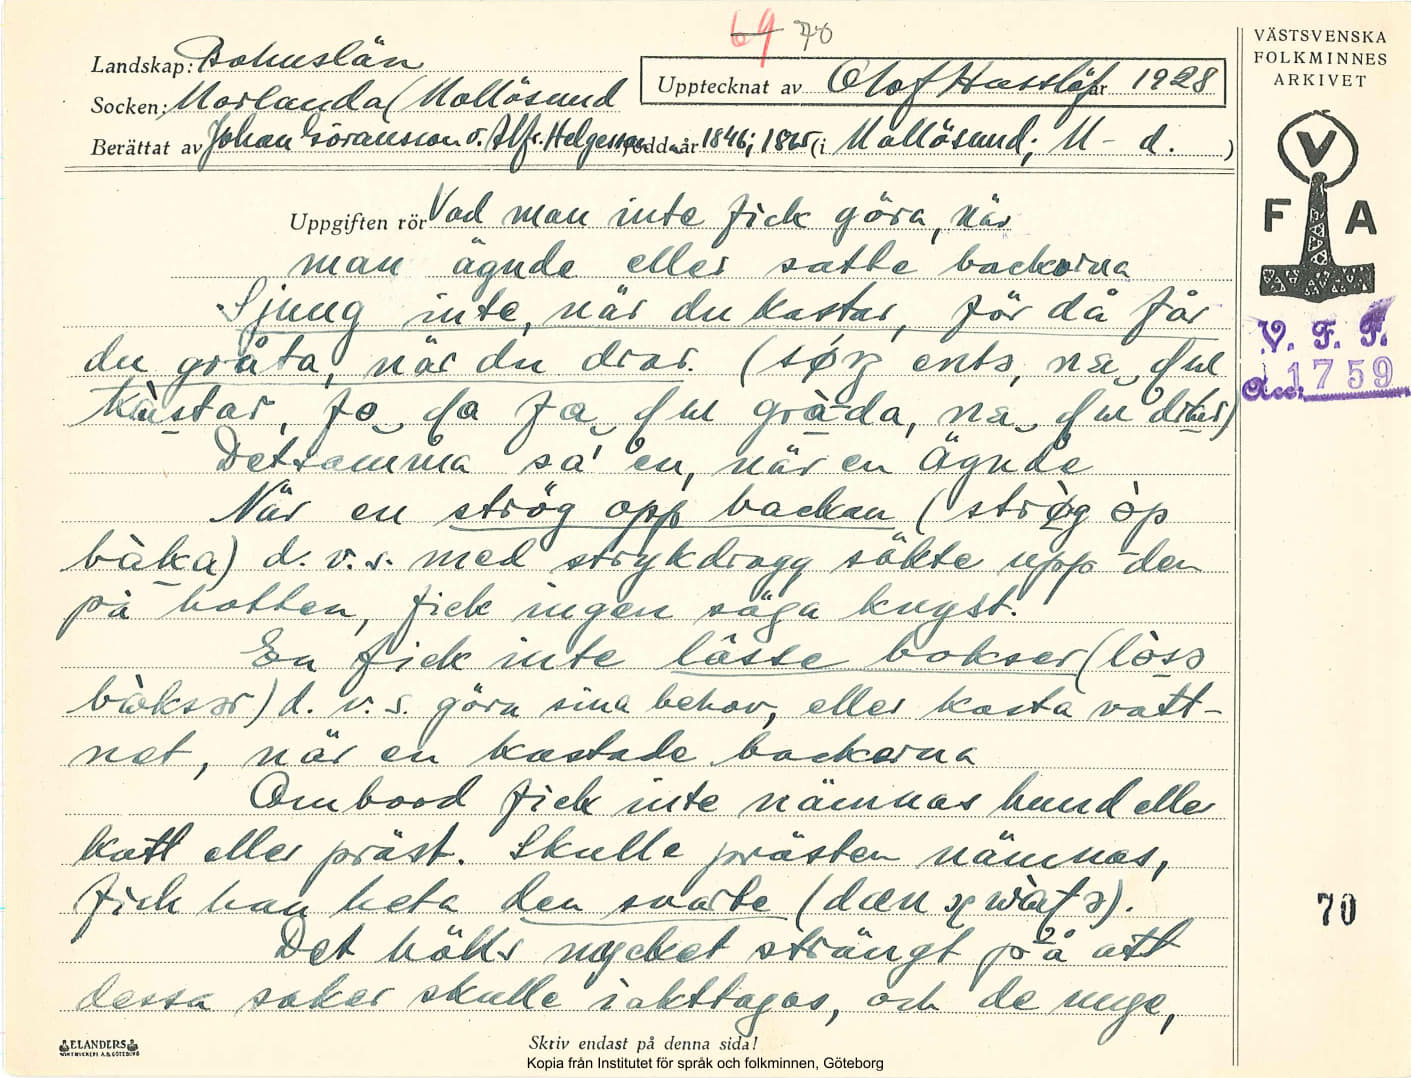 69 70
Landskap: Bohuslän
Socken: Morlanda (Mollösund
Upptecknat av Olof Hasslöf år 1928
Berättat av Johan Göransson o. Alfr. Helgesson född år 1846; 1865 (i Mollösund; M-d.)
VÄSTSVENSKA
FOLKMINNES
ARKIVET
V
F A
V. F. F.
Acc: 1759
Uppgiften rör Vad man inte fick göra, när
man ägnde eller satte backorna
Sjung inte, när du kastar, för då får
du gråta, när du drar. (
Detsamma sa' en, när en ägnde
När en strög opp backan (
) d. v. s. med strykdragg sökte upp den
på botten, fick ingen säga knyst.
En fick inte lösse bokser (
) d. v. s. göra sina behov, eller kasta vatt-
net, när en kastade backorna
Ombord fick inte nämnas hund eller
katt eller präst. Skulle prästen nämnas,
fick han heta den svarte (
Det hölls mycket strängt på att
dessa saker skulle iakttagas, och de unge,
70
ELANDERS
Skriv endast på denna sida!
Kopia från Institutet för språk och folkminnen, Göteborg